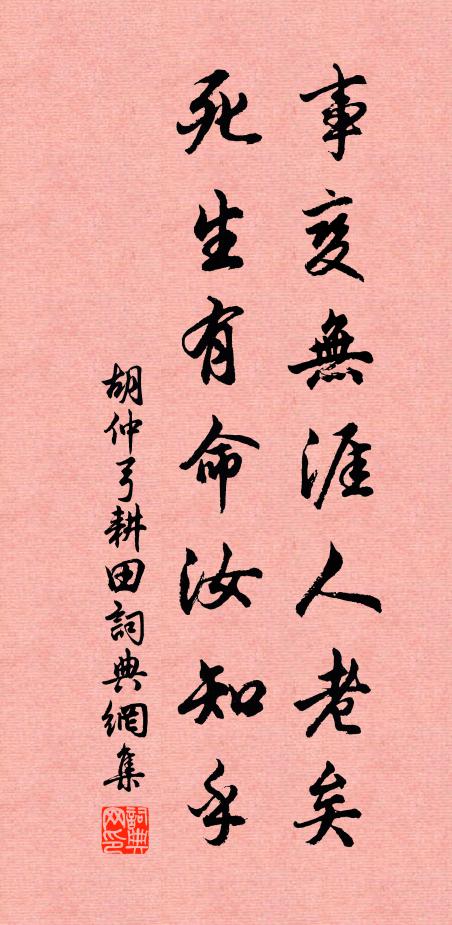 事变無涯人老矣
死生有命汝知乎
胡仲弓耕田詞典網集
詞典网印